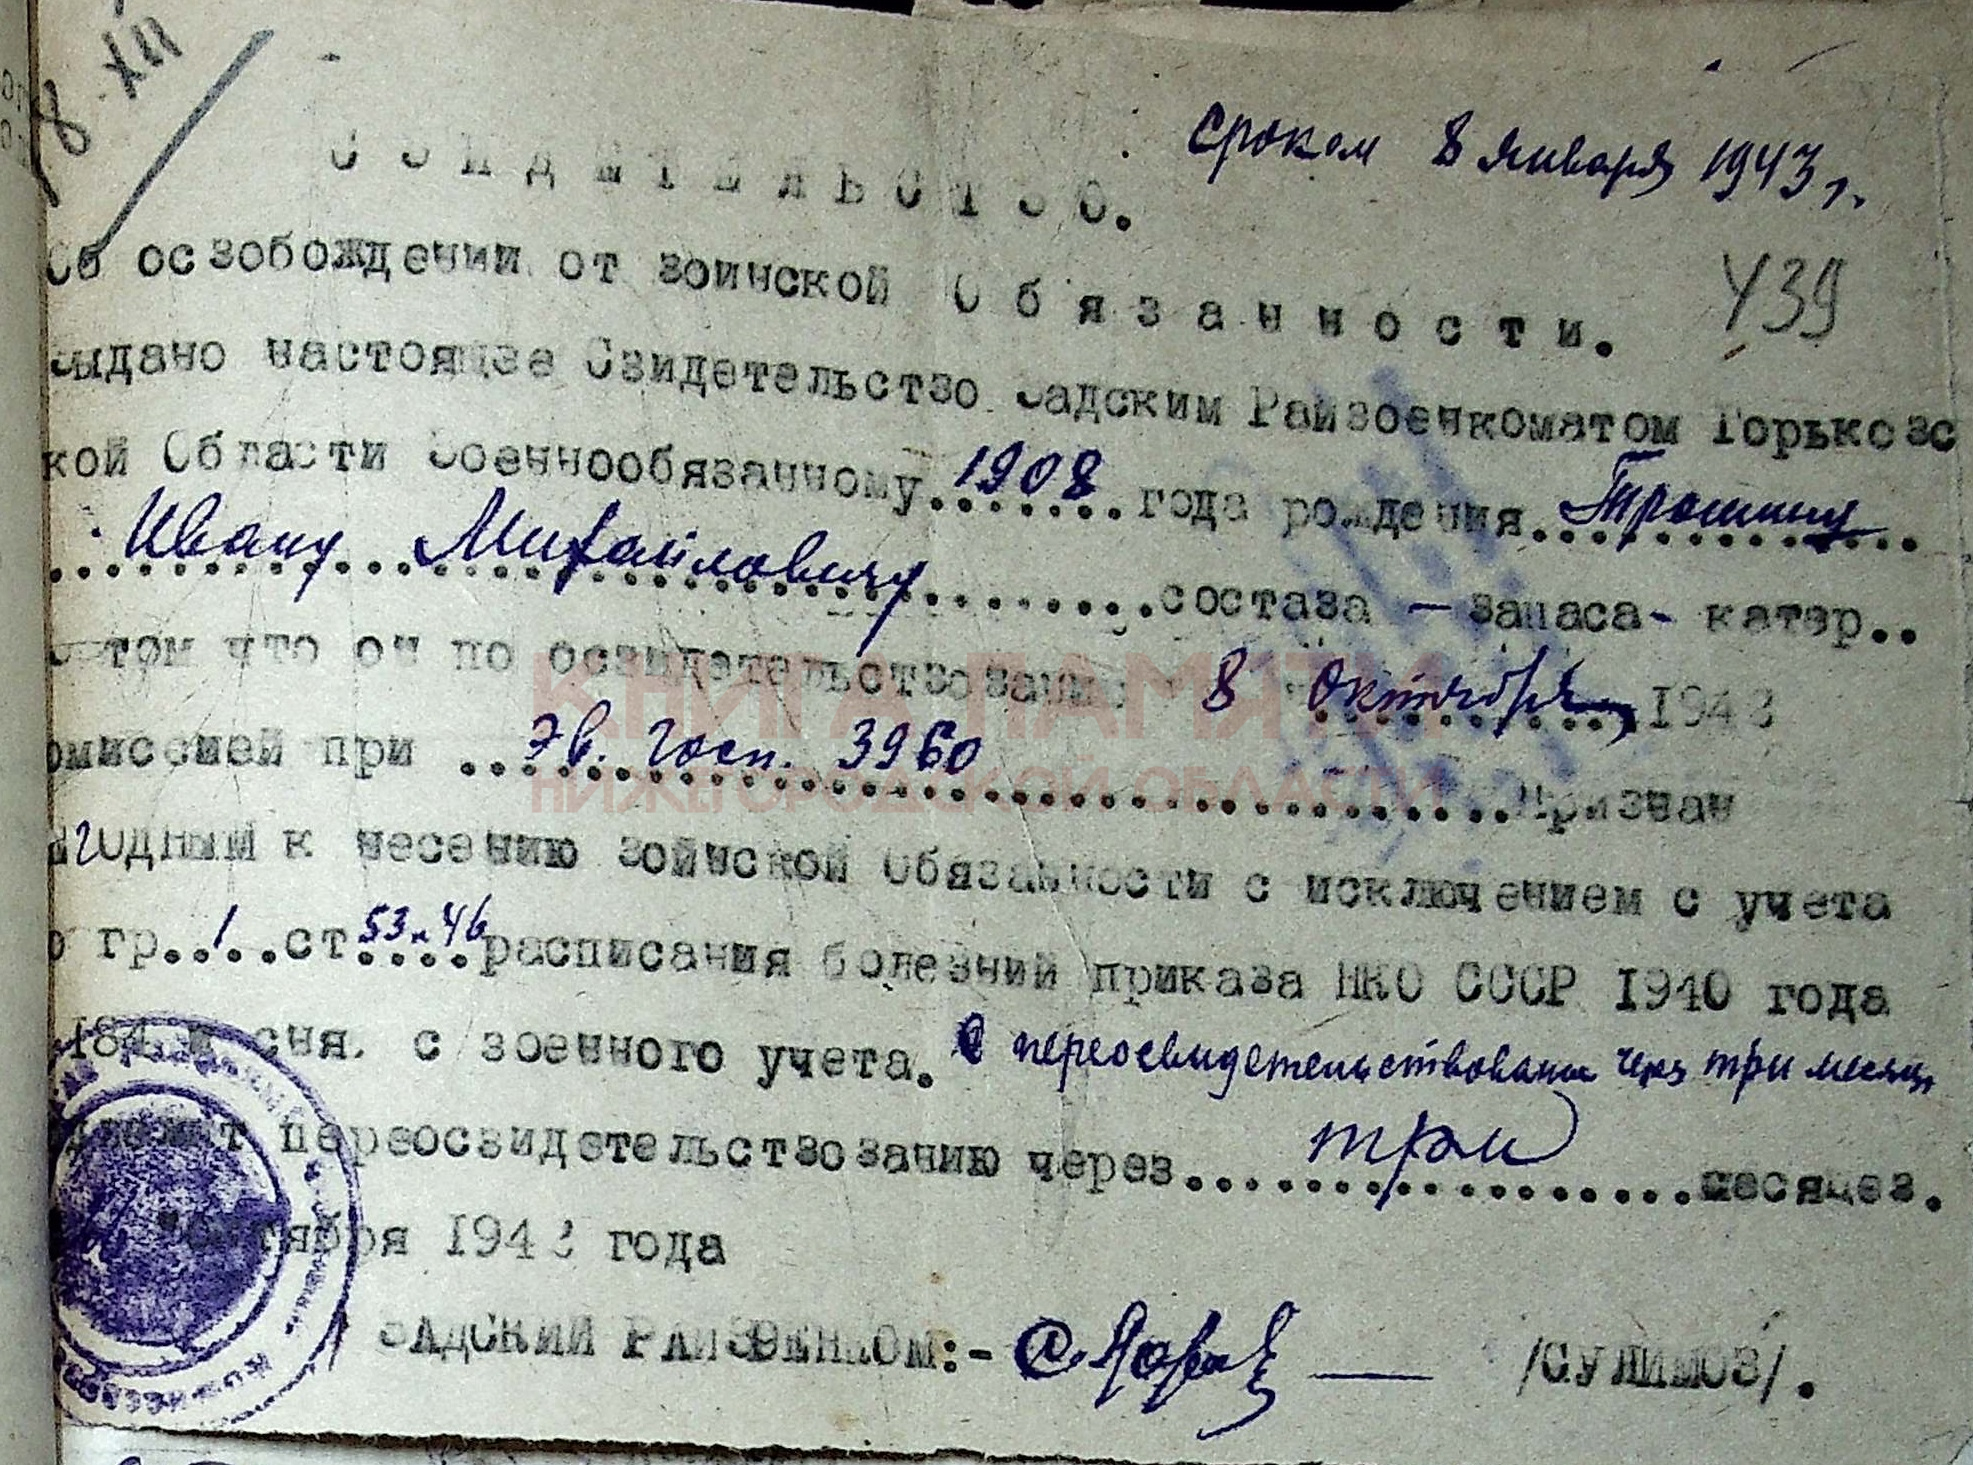 8 XII
сроком 8 января 1943 г.
Свидетельство.
Об освобождении от воинской Обязанности.
439
Выдано настоящее Свидетельство Вадским Райвоенкоматом Горьковс
кой Области Военнообязанному.1908.года рождения.Трошину
Ивану Михайловичу состава - запаса- катер..
О том что он по освидетельствованию 8 Октября 1942
омиссией при Эв. Госп. 3960 Признан
годным к несению воинской Обязанности с исключением с учета
о гр. 1 ст 53 и 46 расписания болезний приказа НКО СССР 1940 года
184 и снят с военного учета. С переосвидетельствованием через три месяца
переосвидетельствованию через три месяцев.
октября 1942 года
ВАДСКИЙ РАЙВОЕНКОМ:- /СУЛИМОВ/.
КНИГА ПАМЯТИ
НИЖЕГОРОДСКОЙ ОБЛАСТИ